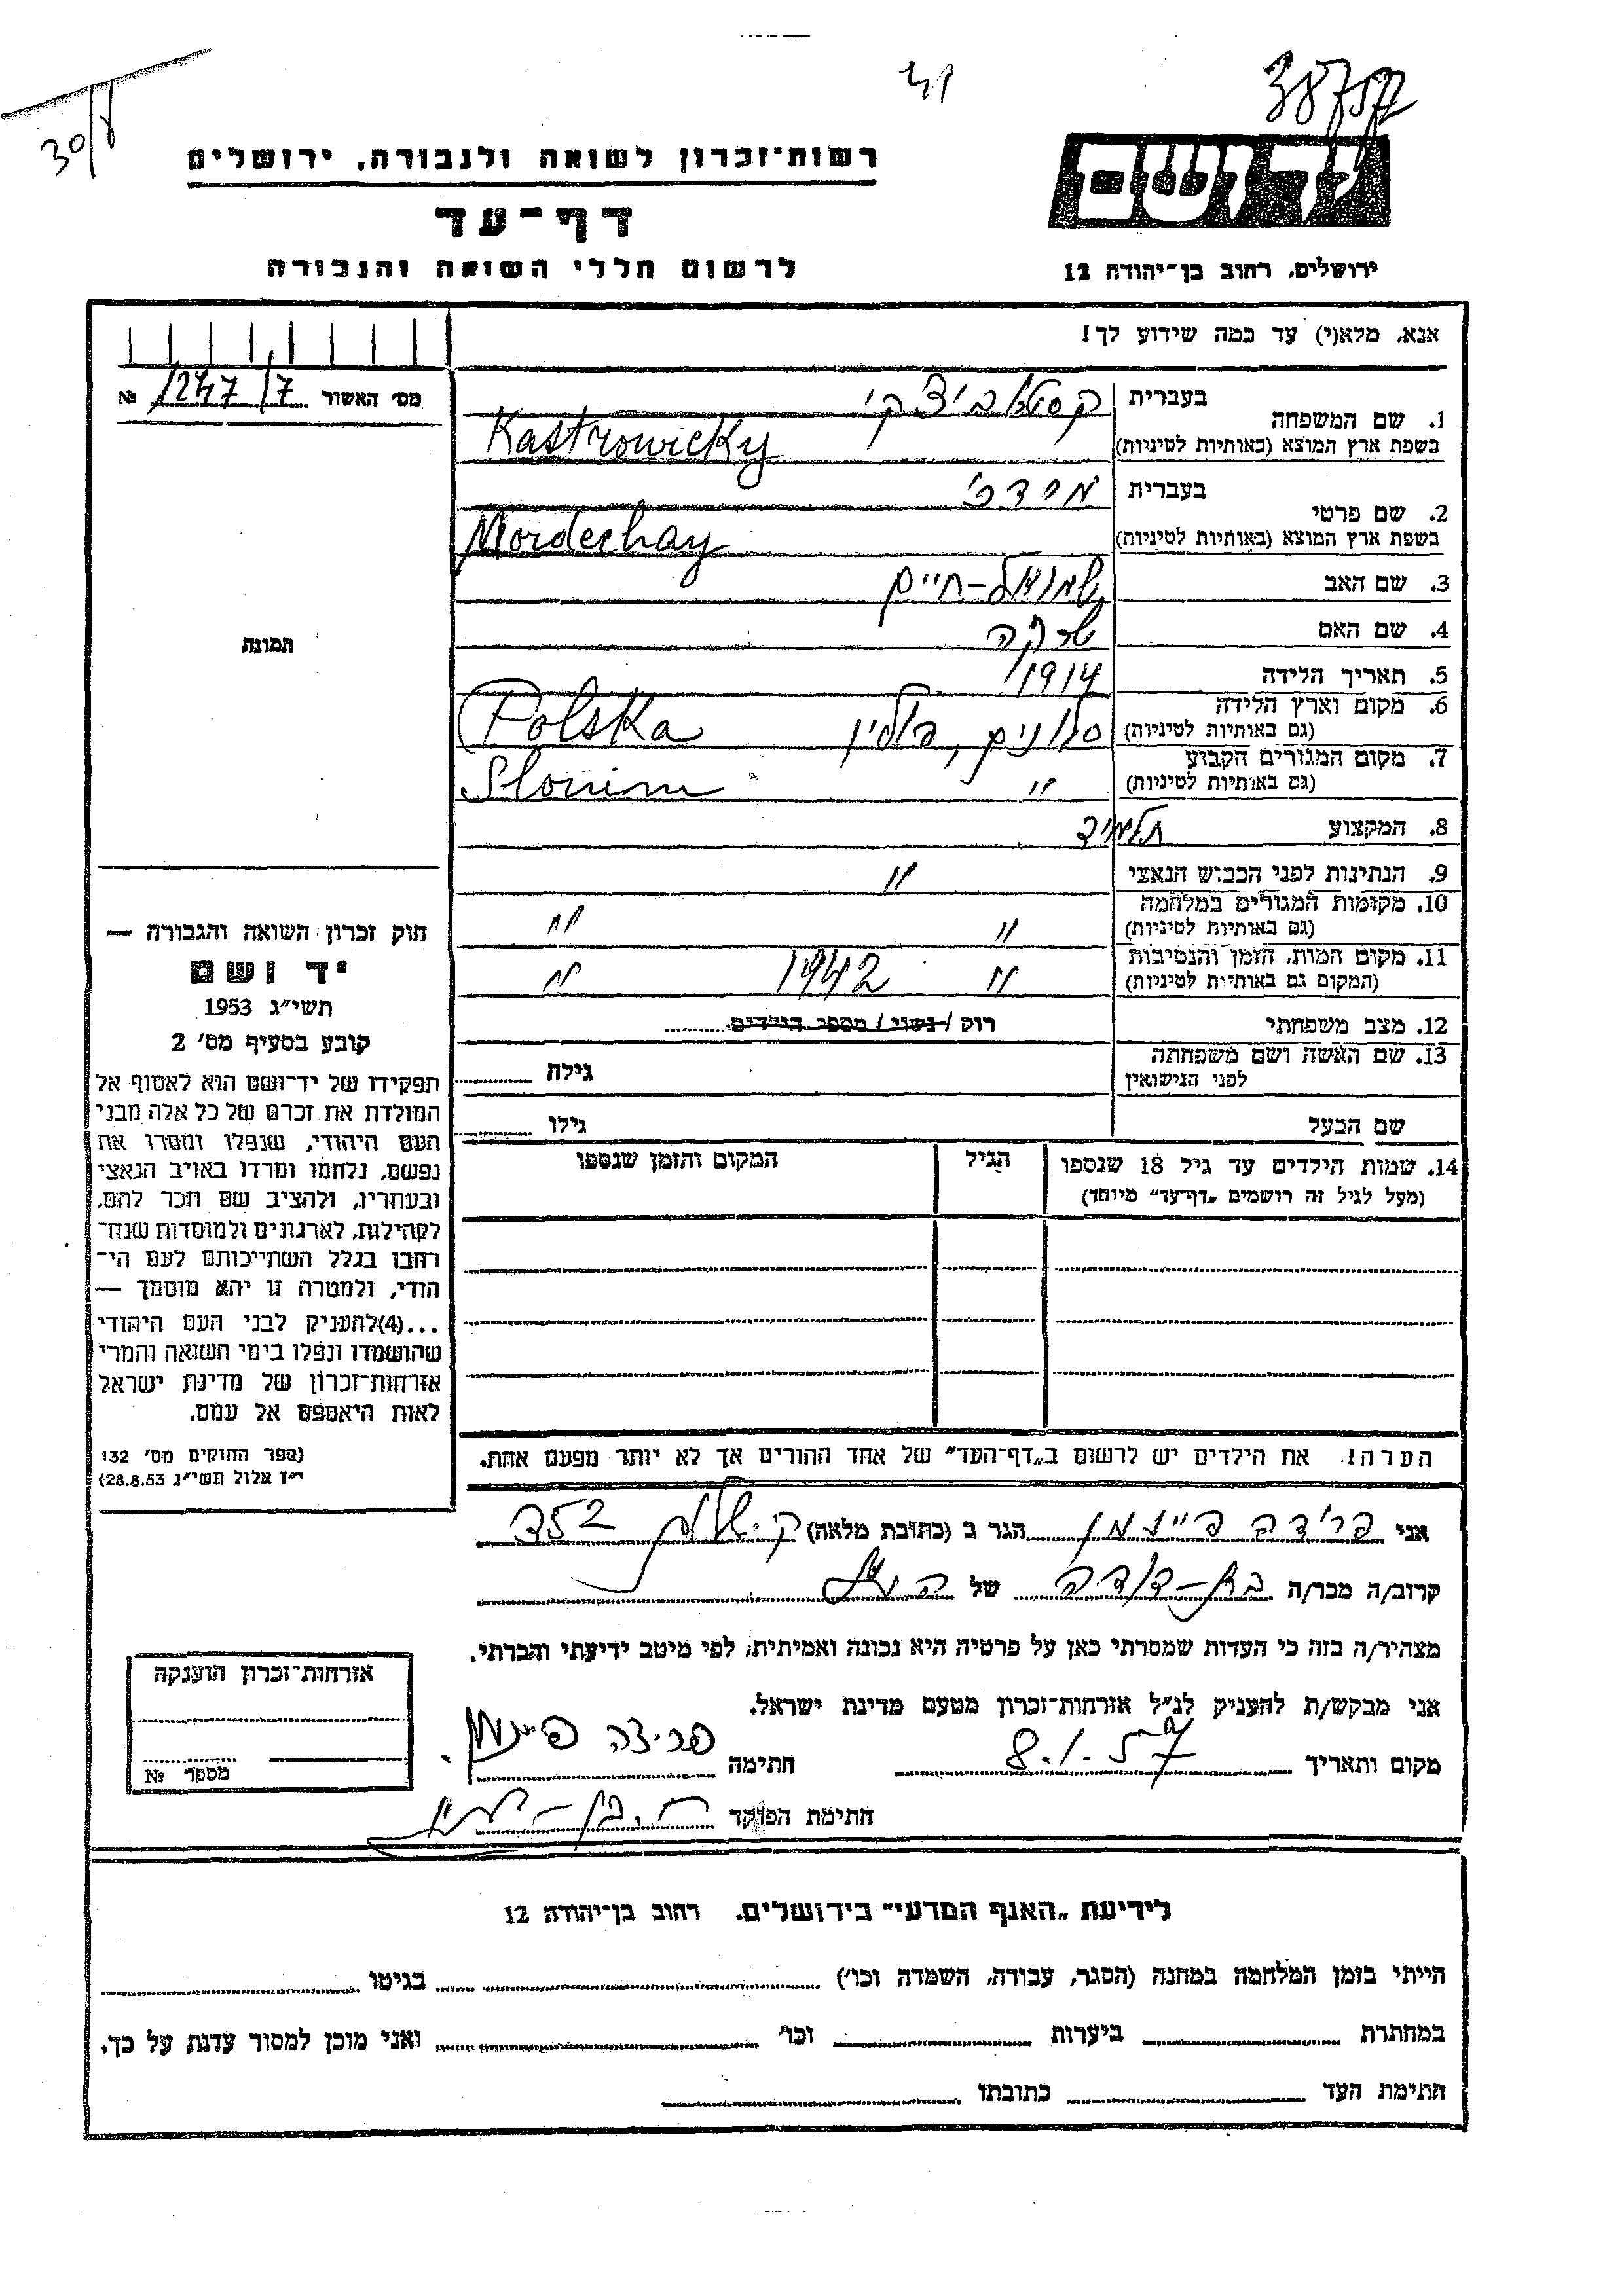 30/8
38757
רשות־זכרון לשואה ולגבורה, ירושלים
דף־עד
לרשום חללי השואה והגבורה
יד ושם
ירושלים, רחוב בן־יהודה 12
אנא, מלא(י) עד כמה שידוע לך!
מס׳ האשור 1247/7 №
תמונה
1. שם המשפחה
בעברית
בשפת ארץ המוצא (באותיות לטיניות)
Kastrowicky
2. שם פרטי
בעברית מרדכי
בשפת ארץ המוצא (באותיות לטיניות)
Mordechay
3. שם האב שמואל־חיים
4. שם האם שרקה
5. תאריך הלידה 1914
6. מקום וארץ הלידה סלונים, פולין Polska
(גם באותיות לטיניות)
7. מקום המגורים הקבוע " Slonim
(גם באותיות לטיניות)
8. המקצוע תלמיד
9. הנתינות לפני הכבוש הנאצי "
10. מקומות המגורים במלחמה " "
(גם באותיות לטיניות)
11. מקום המות, הזמן והנסיבות " 1942 "
(המקום גם באותיות לטיניות)
12. מצב משפחתי רוק / נשוי / מספר הילדים
13. שם האשה ושם משפחתה
לפני הנישואין
גילה
שם הבעל גילו
14. שמות הילדים עד גיל 18 שנספו
(מעל לגיל זה רושמים „דף־עד" מיוחד)
הגיל
המקום והזמן שנספו
חוק זכרון השואה והגבורה —
יד ושם
תשי״ג 1953
קובע בסעיף מס׳ 2
תפקידו של יד־ושם הוא לאסוף אל
המולדת את זכרם של כל אלה מבני
העם היהודי, שנפלו ומסרו את
נפשם, נלחמו ומרדו באויב הנאצי
ובעוזריו, ולהציב שם וזכר להם,
לקהילות, לארגונים ולמוסדות שנח־
רבו בגלל השתייכותם לעם הי־
הודי, ולמטרה זו יהא מוסמך —
...(4) להעניק לבני העם היהודי
שהושמדו ונפלו בימי השואה והמרי
אזרחות־זכרון של מדינת ישראל
לאות היאספם אל עמם.
(ספר החוקים מס׳ 132
י״ז אלול תשי״ג 28.8.53)
הערה! את הילדים יש לרשום ב„דף־העד" של אחד ההורים אך לא יותר מפעם אחת.
אני פרידה פיינמן הגר ב (כתובת מלאה) ק. שלום
קרוב/ה מכר/ה בת־דודה של
מצהיר/ה בזה כי העדות שמסרתי כאן על פרטיה היא נכונה ואמיתית, לפי מיטב ידיעתי והכרתי.
אני מבקש/ת להעניק לנ״ל אזרחות־זכרון מטעם מדינת ישראל.
מקום ותאריך 8.1.57 חתימה פרידה פיינמן
חתימת הפוקד
אזרחות־זכרון הוענקה
מספר №
לידיעת „האגף המדעי" בירושלים. רחוב בן־יהודה 12
הייתי בזמן המלחמה במחנה (הסגר, עבודה, השמדה וכו׳) בגיטו
במחתרת ביערות וכו׳ ואני מוכן למסור עדות על כך.
חתימת העד כתובתו